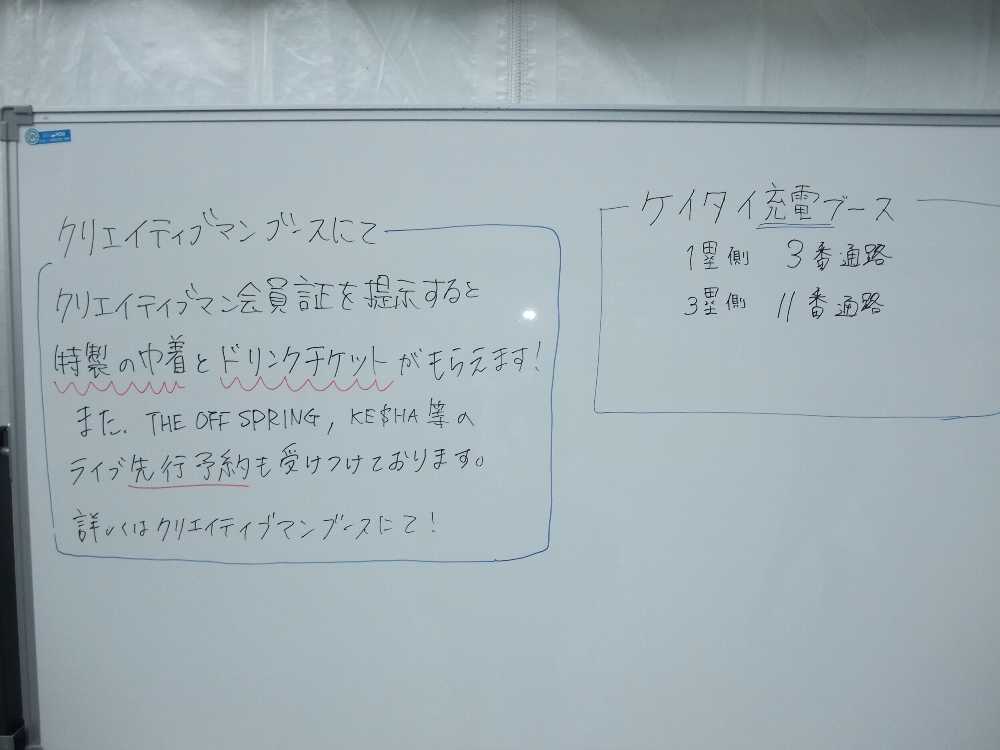 クリエイティブマンブースにて
クリエイティブマン会員証を提示すると
特製の巾着とドリンクチケットがもらえます!
また、THE OFFSPRING, KE$HA等の
ライブ先行予約も受けつけております。
詳しくはクリエイティブマンブースにて!
ケイタイ充電ブース
1塁側 3番通路
3塁側 11番通路